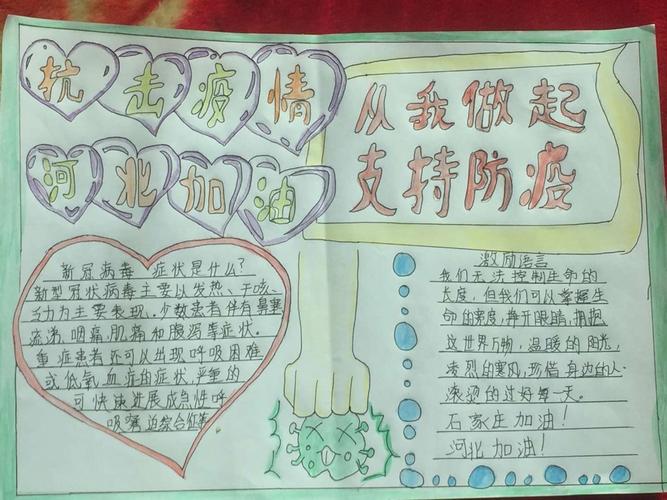 抗击疫情
河北加油
从我做起
支持防疫
新冠病毒 症状是什么？
新型冠状病毒主要以发热、干咳、
乏力为主要表现。少数患者伴有鼻塞
流涕、咽痛、肌痛和腹泻等症状。
重症患者还可以出现呼吸困难
或低氧血症的症状，严重的
可快速进展成急性呼
吸窘迫综合征等
激励语言
我们无法控制生命的
长度，但我们可以掌握生
命的宽度，睁开眼睛，拥抱
这世界万物，温暖的阳光，
凛冽的寒风，珍惜身边的人
滚烫的过好每一天。
石家庄加油！
河北加油！